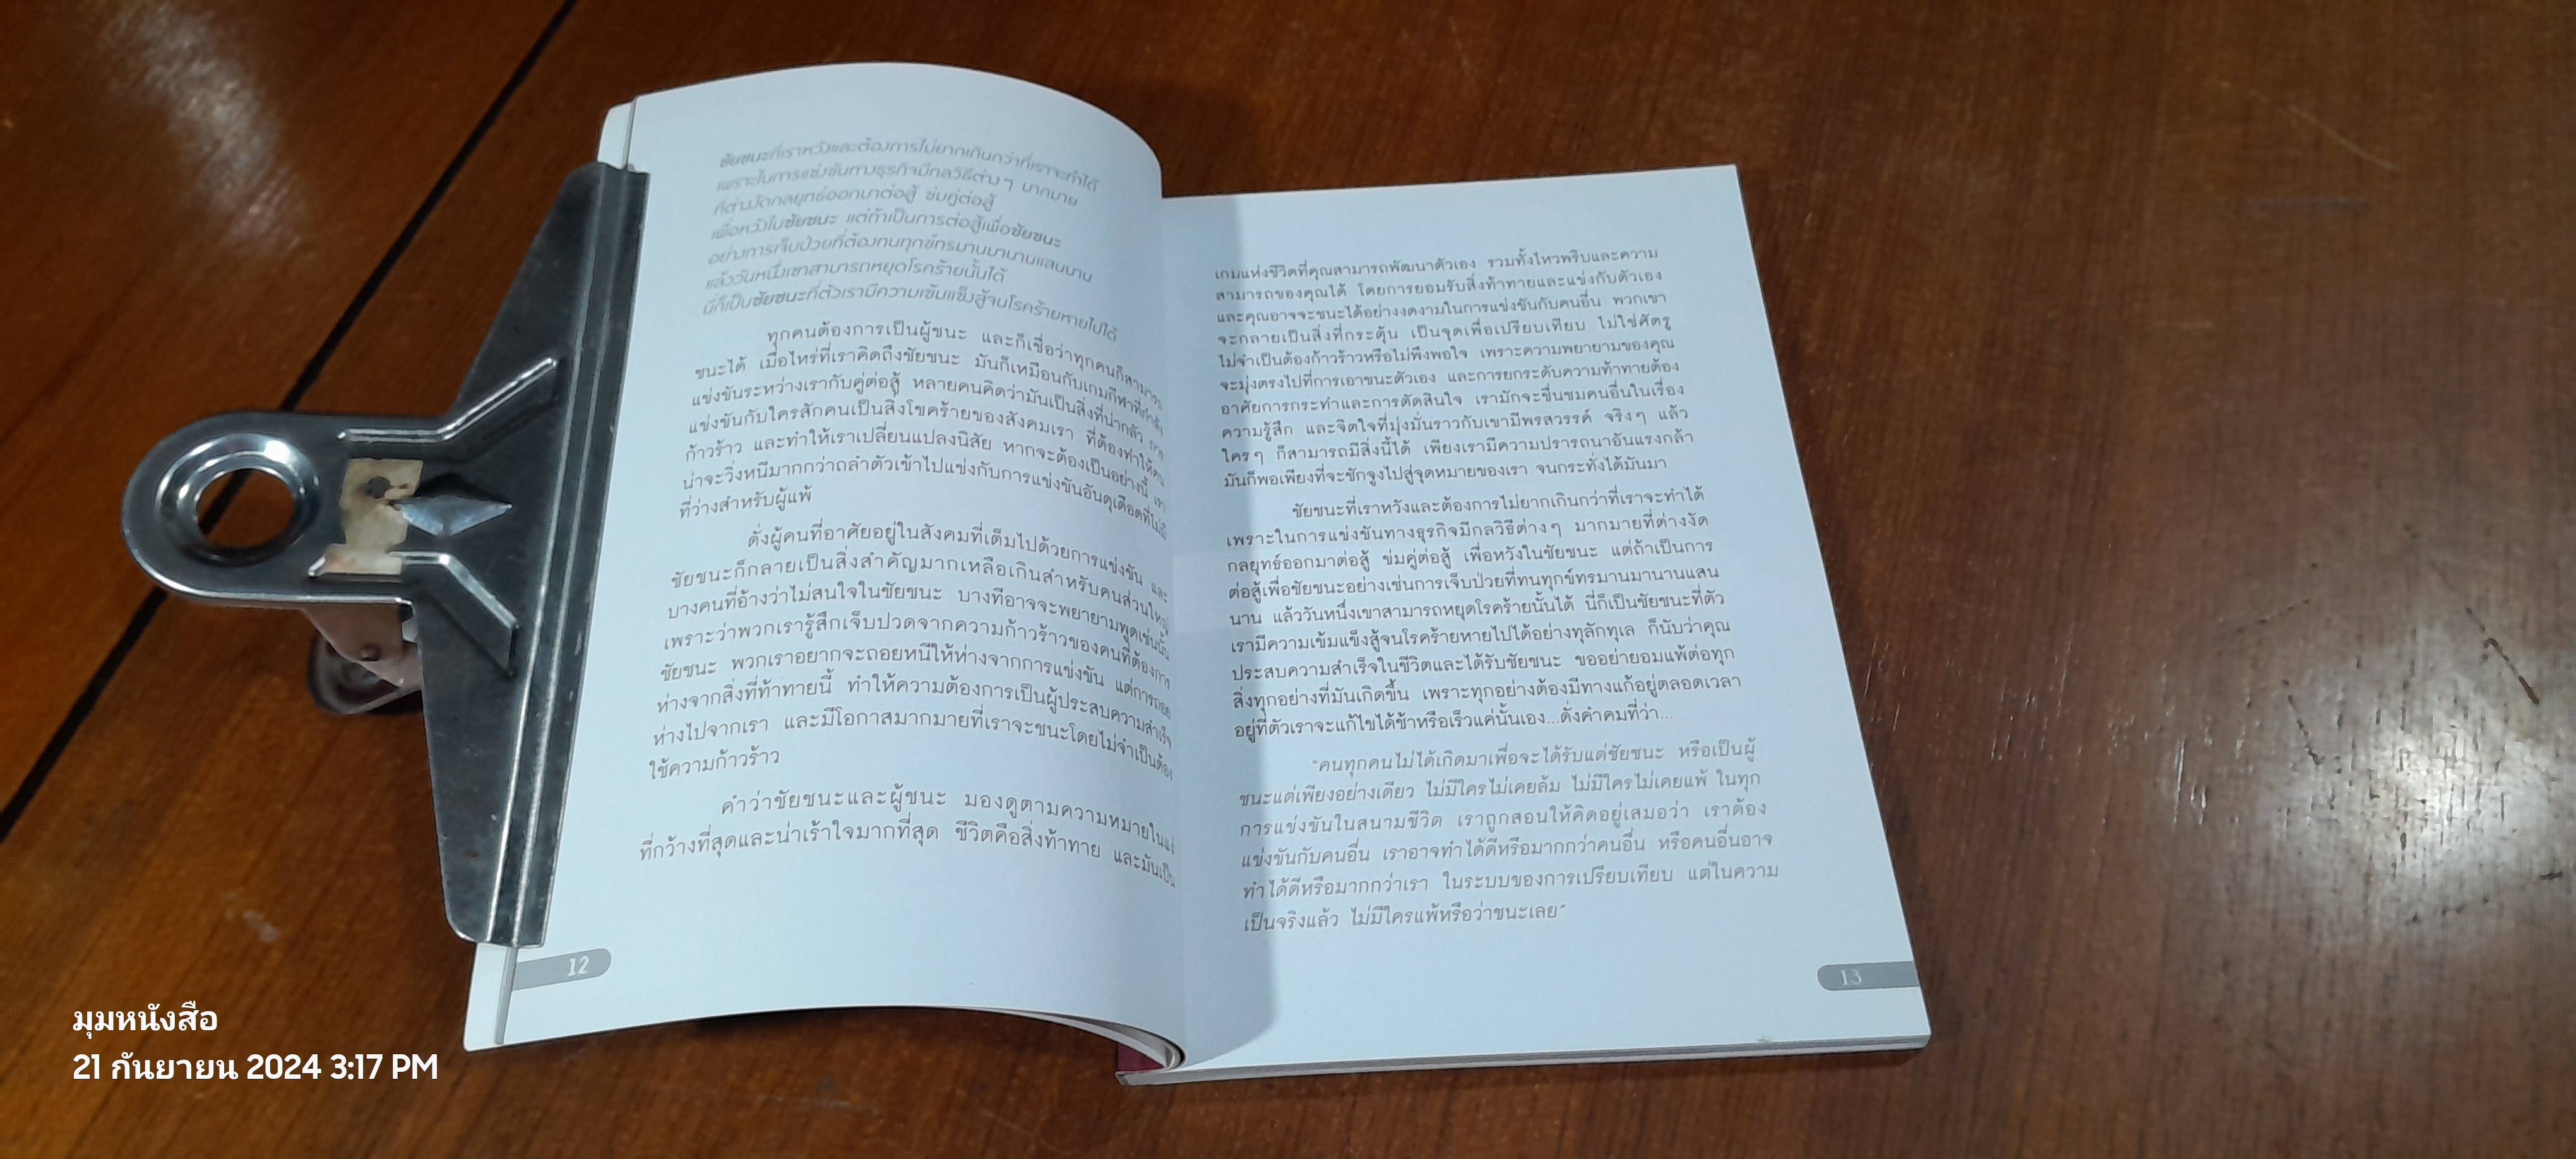 ชัยชนะที่เราหวังและต้องการไม่ยากเกินกว่าที่เราจะทำได้
เพราะในการแข่งขันทางธุรกิจมีกลวิธีต่างๆ มากมาย
ที่ต่างงัดกลยุทธ์ออกมาต่อสู้ ข่มคู่ต่อสู้
เพื่อหวังในชัยชนะ แต่ถ้าเป็นการต่อสู้เพื่อชัยชนะ
อย่างการเจ็บป่วยที่ต้องทนทุกข์ทรมานมานานแสนนาน
แล้ววันหนึ่งเขาสามารถหยุดโรคร้ายนั้นได้
นี่ก็เป็นชัยชนะที่ตัวเรามีความเข้มแข็งสู้จนโรคร้ายหายไปได้
ทุกคนต้องการเป็นผู้ชนะ และก็เชื่อว่าทุกคนก็สามารถ
ชนะได้ เมื่อไหร่ที่เราคิดถึงชัยชนะ มันก็เหมือนกับเกมกีฬาที่กำลัง
แข่งขันระหว่างเรากับคู่ต่อสู้ หลายคนคิดว่ามันเป็นสิ่งที่น่ากลัว การ
แข่งขันกับใครสักคนเป็นสิ่งโชคร้ายของสังคมเรา ที่ต้องทำให้คน
ก้าวร้าว และทำให้เราเปลี่ยนแปลงนิสัย หากจะต้องเป็นอย่างนี้ เรา
น่าจะวิ่งหนีมากกว่าถลำตัวเข้าไปแข่งกับการแข่งขันอันดุเดือดที่ไม่มี
ที่ว่างสำหรับผู้แพ้
ดั่งผู้คนที่อาศัยอยู่ในสังคมที่เต็มไปด้วยการแข่งขัน และ
ชัยชนะก็กลายเป็นสิ่งสำคัญมากเหลือเกินสำหรับคนส่วนใหญ่
บางคนที่อ้างว่าไม่สนใจในชัยชนะ บางทีอาจจะพยายามพูดเช่นนั้น
เพราะว่าพวกเรารู้สึกเจ็บปวดจากความก้าวร้าวของคนที่ต้องการ
ชัยชนะ พวกเราอยากจะถอยหนีให้ห่างจากการแข่งขัน แต่การถอย
ห่างจากสิ่งที่ท้าทายนี้ ทำให้ความต้องการเป็นผู้ประสบความสำเร็จ
ห่างไปจากเรา และมีโอกาสมากมายที่เราจะชนะโดยไม่จำเป็นต้อง
ใช้ความก้าวร้าว
คำว่าชัยชนะและผู้ชนะ มองดูตามความหมายในแง่
ที่กว้างที่สุดและน่าเร้าใจมากที่สุด ชีวิตคือสิ่งท้าทาย และมันเป็น
12
เกมแห่งชีวิตที่คุณสามารถพัฒนาตัวเอง รวมทั้งไหวพริบและความ
สามารถของคุณได้ โดยการยอมรับสิ่งท้าทายและแข่งกับตัวเอง
และคุณอาจจะชนะได้อย่างงดงามในการแข่งขันกับคนอื่น พวกเขา
จะกลายเป็นสิ่งที่กระตุ้น เป็นจุดเพื่อเปรียบเทียบ ไม่ใช่ศัตรู
ไม่จำเป็นต้องก้าวร้าวหรือไม่พึงพอใจ เพราะความพยายามของคุณ
จะมุ่งตรงไปที่การเอาชนะตัวเอง และการยกระดับความท้าทายต้อง
อาศัยการกระทำและการตัดสินใจ เรามักจะชื่นชมคนอื่นในเรื่อง
ความรู้สึก และจิตใจที่มุ่งมั่นราวกับเขามีพรสวรรค์ จริงๆ แล้ว
ใครๆ ก็สามารถมีสิ่งนี้ได้ เพียงเรามีความปรารถนาอันแรงกล้า
มันก็พอเพียงที่จะชักจูงไปสู่จุดหมายของเรา จนกระทั่งได้มันมา
ชัยชนะที่เราหวังและต้องการไม่ยากเกินกว่าที่เราจะทำได้
เพราะในการแข่งขันทางธุรกิจมีกลวิธีต่างๆ มากมายที่ต่างงัด
กลยุทธ์ออกมาต่อสู้ ข่มคู่ต่อสู้ เพื่อหวังในชัยชนะ แต่ถ้าเป็นการ
ต่อสู้เพื่อชัยชนะอย่างเช่นการเจ็บป่วยที่ทนทุกข์ทรมานมานานแสน
นาน แล้ววันหนึ่งเขาสามารถหยุดโรคร้ายนั้นได้ นี่ก็เป็นชัยชนะที่ตัว
เรามีความเข้มแข็งสู้จนโรคร้ายหายไปได้อย่างทุลักทุเล ก็นับว่าคุณ
ประสบความสำเร็จในชีวิตและได้รับชัยชนะ ขออย่ายอมแพ้ต่อทุก
สิ่งทุกอย่างที่มันเกิดขึ้น เพราะทุกอย่างต้องมีทางแก้อยู่ตลอดเวลา
อยู่ที่ตัวเราจะแก้ไขได้ช้าหรือเร็วแค่นั้นเอง...ดั่งคำคมที่ว่า...
"คนทุกคนไม่ได้เกิดมาเพื่อจะได้รับแต่ชัยชนะ หรือเป็นผู้
ชนะแต่เพียงอย่างเดียว ไม่มีใครไม่เคยล้ม ไม่มีใครไม่เคยแพ้ ในทุก
การแข่งขันในสนามชีวิต เราถูกสอนให้คิดอยู่เสมอว่า เราต้อง
แข่งขันกับคนอื่น เราอาจทำได้ดีหรือมากกว่าคนอื่น หรือคนอื่นอาจ
ทำได้ดีหรือมากกว่าเรา ในระบบของการเปรียบเทียบ แต่ในความ
เป็นจริงแล้ว ไม่มีใครแพ้หรือว่าชนะเลย"
13
มุมหนังสือ
21 กันยายน 2024 3:17 PM